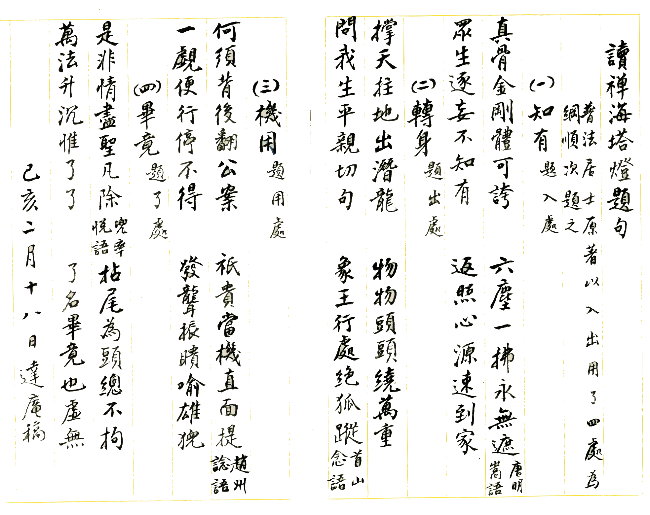 讀禪海塔燈題句
普法居士原著以入出用了四處為
綱順次題之
(一)知有 題入處
真骨金剛體可誇 六塵一拂永無遮 唐明嵩語
眾生逐妄不知有 返照心源速到家
(二)轉身 題出處
撐天拄地出潛龍 物物頭頭繞萬重
問我生平親切句 象王行處絕狐蹤 首山念語
(三)機用 題用處
何須背後翻公案 祇貴當機直面提 趙州諗語
一覷便行停不得 發聾振聵喻雄猊
(四)畢竟 題了處
是非情盡聖凡除 兜率悅語 拈尾為頭總不拘
萬法升沉惟了了 了名畢竟也虛無
己亥二月十八日達庵稿